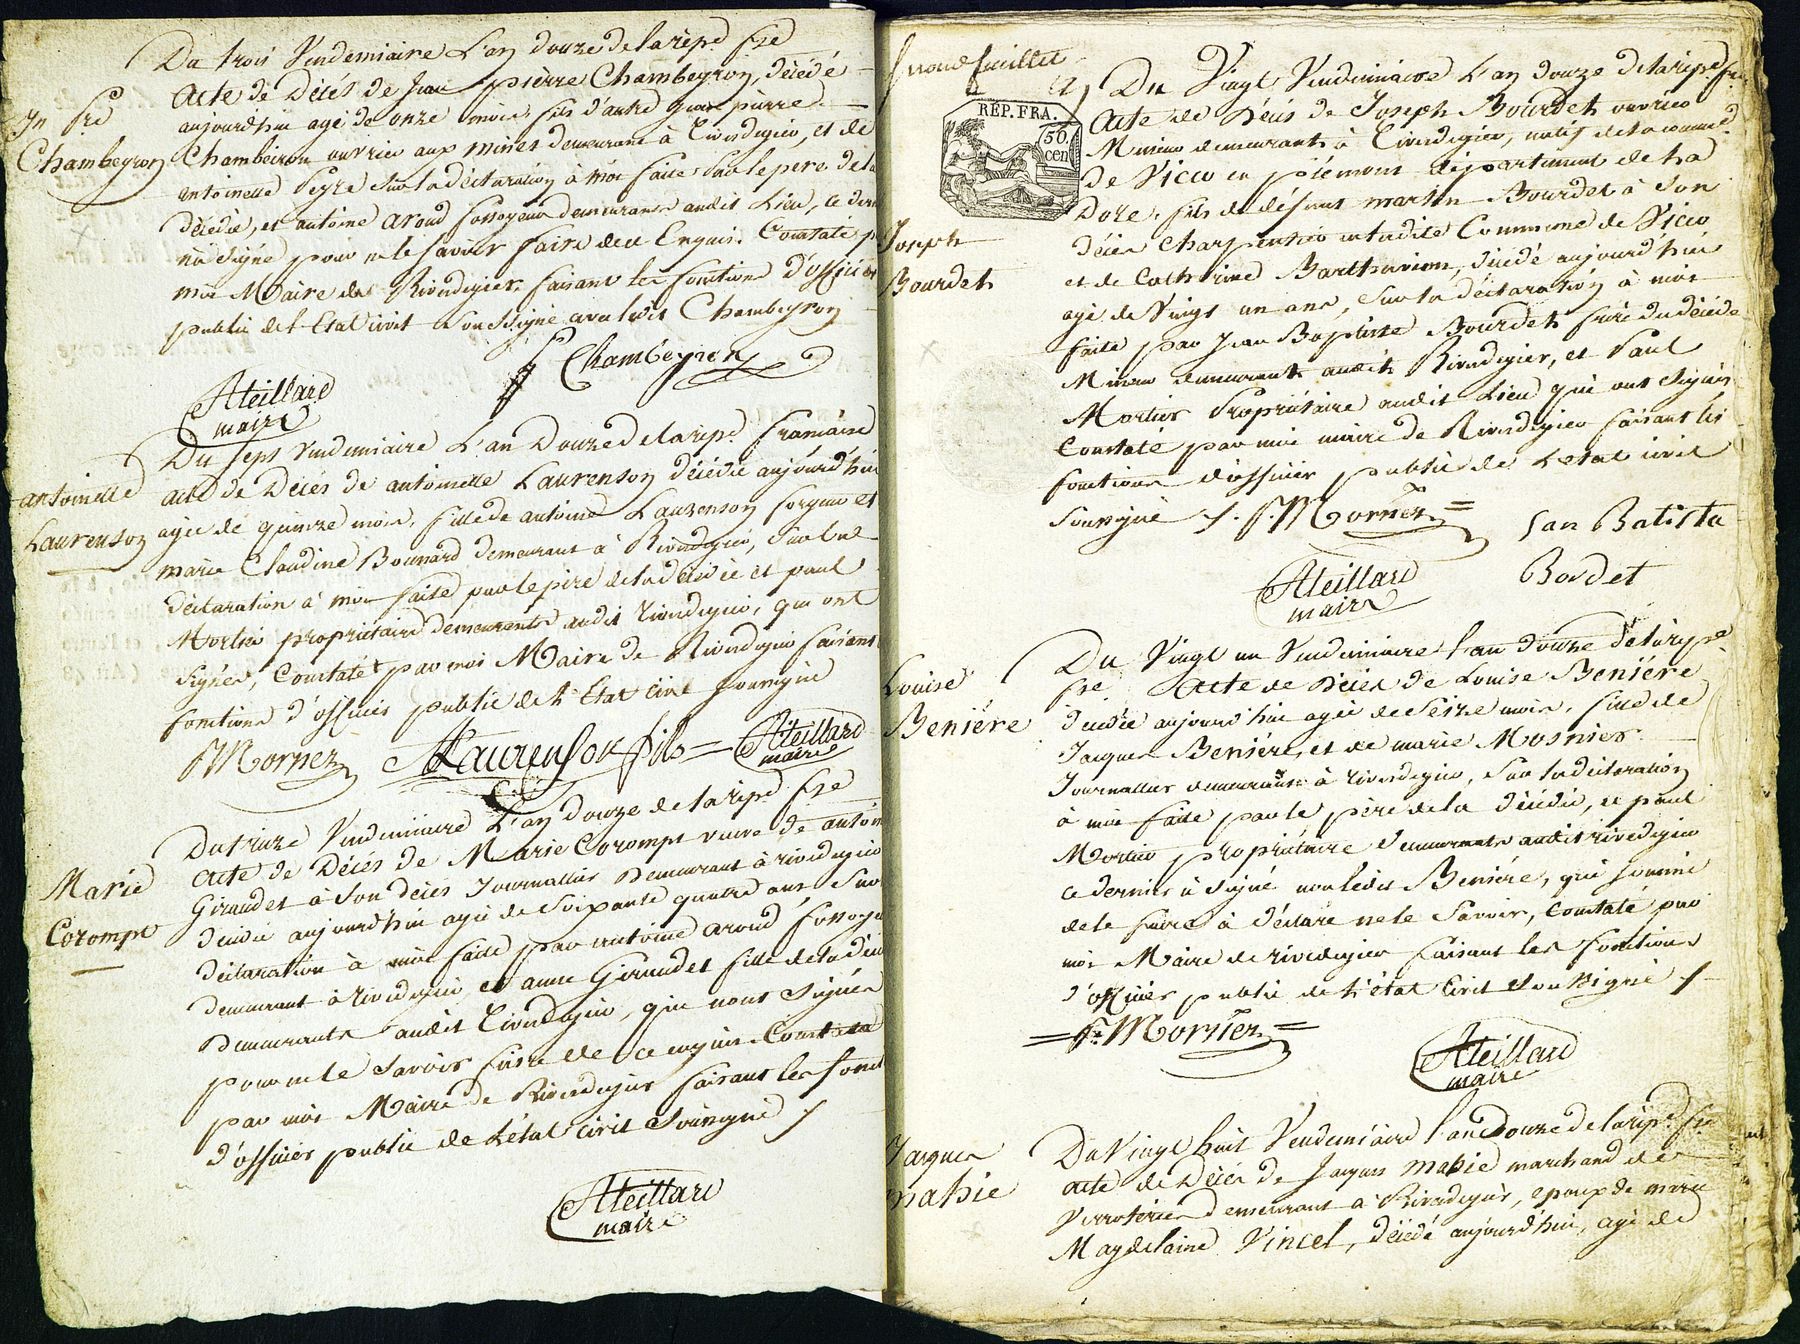 Du trois Vendemiaire L'an douze de la rép.e fse
Jn Pre
Chambeyron
Acte de Décés de Jean pierre Chambeyron, décédé
aujourd'hui agé de onze mois fils d'autre Jean pierre
Chambeiron ouvrier aux mines demeurant à rivedegier, et de
antoinette Peyre Sur la déclaration à moi faite par le pere de la
décédée, et antoine aroud fossoyeur demeurant audit Lieu, ce dern
na Signé pour ne le savoir faire de ce Enquis. Constaté p
moi Maire de Rivedegier, faisant les fonctions d'officier
public de l'Etat civil Soussigné avec ledit Chambeyron
Chambeyron
Ateillard
maire
Du sept vendemiaire L'an Douze de la rép.e francaise
antoinette
Laurenson
acte de Décés de antoinette Laurenson décédée aujourd'hui
agée de quinze mois, fille de antoine Laurenson forgeur et
marie Claudine Bonnard demeurant à Rivedegier, Sur la
déclaration à moi faite par le père de la décédée et paul
Mortier propriétaire demeurants audit rivedegier, qui ont
Signés, Constaté par moi Maire de Rivedegier faisant
fonctions d'officier public de l'Etat civil soussigné
PMornez ALaurenson fils Ateillard
maire
Du treize Vendemiaire L'an douze de la rép.e fse
Marie
Corompt
acte de Décés de Marie Corompt veuve de antoin
Giraudet à Son décés Journallier Demeurant à rivedegier
décédée aujourd'hui agée de Soixante quatre ans Sur
déclaration à moi faite par antoine aroud, fossoye
demeurant à rivedegier, et anne Giraudet fille de la décé
Demeurants audit rivedegier, qui nont Signés
pour ne le Savoir faire de ce enquis Constaté
par moi Maire de Rivedegier faisant les fonct
d'officier public de L'état Civil Soussigné /
Ateillard
maire
second feuillet
RÉP. FRA.
50.
cen
Joseph
Bourdet
Du Vingt Vendemiaire L'an douze de la rép.e fse
Acte de Décés de Joseph Bourdet ouvrier
Mineur demeurant à rivedegier, natif de la comune
de Vico en piémont département de La
Doire, fils de défunt martin Bourdet à Son
décés Charpentier en ladite Commune de Vico
et de Catherine Barthavion, décédé aujourd'hui
agé de Vingt un ans, Sur la déclaration à moi
faite par Jean Baptiste Bourdet frère du décédé
Mineur demeurant audit Rivedegier, et Paul
Mortier Propriétaire audit Lieu qui ont Signés
Constaté par moi maire de Rivedegier faisant les
fonctions d'officier public de L'etat civil
Soussigné /. P. Mornez
san Batista
Bordet
Ateillard
maire
Louise
Beniére
Du Vingt un Vendemiaire l'an douze de la rép.e
fse Acte de Décés de Louise Beniére
décédée aujourd'hui agée de Seize mois, fille de
Jacques Beniére, et de marie Mosnier
Journallier demeurant à rivedegier, Sur la déclaration
à moi faite par le père de la décédée, et paul
Mortier propriétaire demeurants audit rivedegier
ce dernier à Signé non ledit Beniére, qui sommé
de le faire à déclaré ne le Savoir, Constaté par
moi Maire de rivedegier faisant les fonctions
d'officier public de l'état Civil Soussigné /
P. Mornez
Ateillard
maire
Jacques
mahie
Du Vingt huit Vendemiaire l'an Douze de la rép.e fse
acte de Décés de Jacques mahie marchand de
Verroterie demeurant à Rivedegier, époux de marie
Magdelaine Vincel, décédé aujourd'hui, agé de